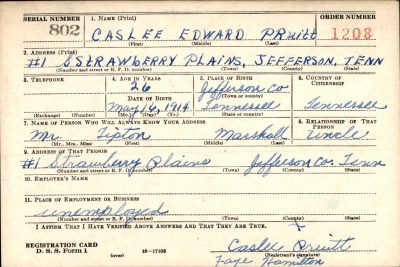 SERIAL NUMBER 1. NAME (Print) ORDER NUMBER
802 CASLEE EDWARD PRUITT 1208
(First) (Middle) (Last)
2. ADDRESS (Print)
#1 STRAWBERRY PLAINS, JEFFERSON, TENN
(Number and street or R. F. D. number) (Town) (County) (State)
3. TELEPHONE 4. AGE IN YEARS 5. PLACE OF BIRTH 6. COUNTRY OF CITIZENSHIP
26 Jefferson Co
DATE OF BIRTH (Town or county)
May 16, 1914 Tennessee Tennessee
(Exchange) (Number) (Mo.) (Day) (Yr.) (State or country)
7. NAME OF PERSON WHO WILL ALWAYS KNOW YOUR ADDRESS 8. RELATIONSHIP OF THAT PERSON
Mr. Tipton Marshall Uncle
(Mr., Mrs., Miss) (First) (Middle) (Last)
9. ADDRESS OF THAT PERSON
#1 Strawberry Plains Jefferson Co. Tenn
(Number and street or R. F. D. number) (Town) (County) (State)
10. EMPLOYER'S NAME
11. PLACE OF EMPLOYMENT OR BUSINESS
unemployed
(Number and street or R. F. D. number) (Town) (County) (State)
I AFFIRM THAT I HAVE VERIFIED ABOVE ANSWERS AND THAT THEY ARE TRUE.
REGISTRATION CARD
D. S. S. Form 1 (over) 16—17105
Caslee Pruitt
(Registrant's signature)
Faye Hamilton